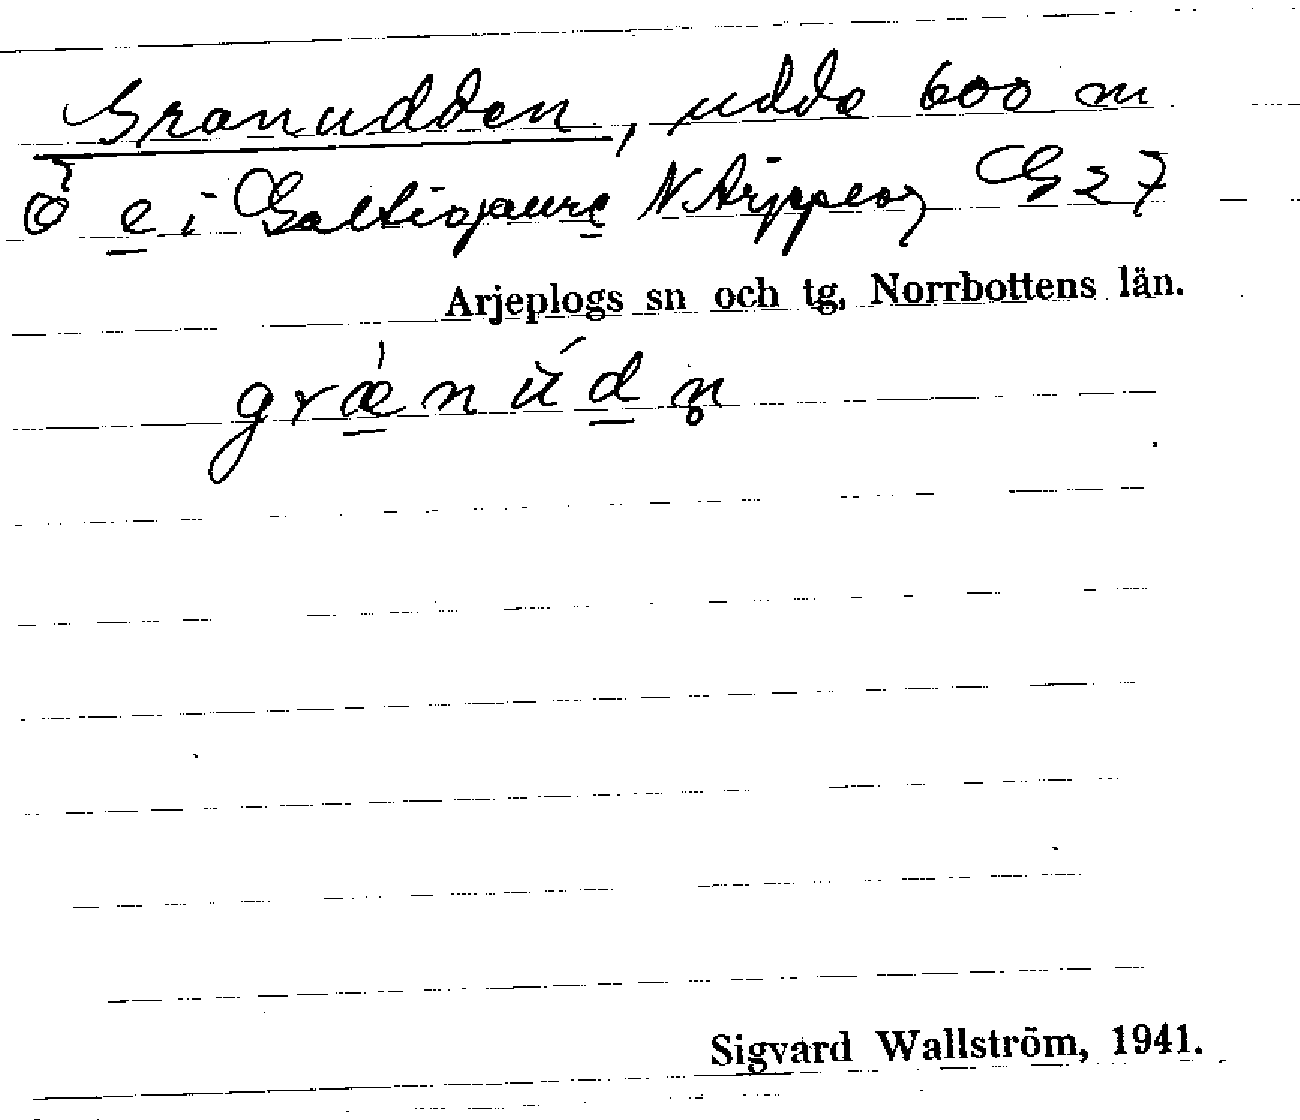 Granudden, udde 600 m
Ö e i Galtisjaure N Arjeplog G 27
Arjeplogs sn och tg, Norrbottens län.
grænúdn̥
Sigvard Wallström, 1941.